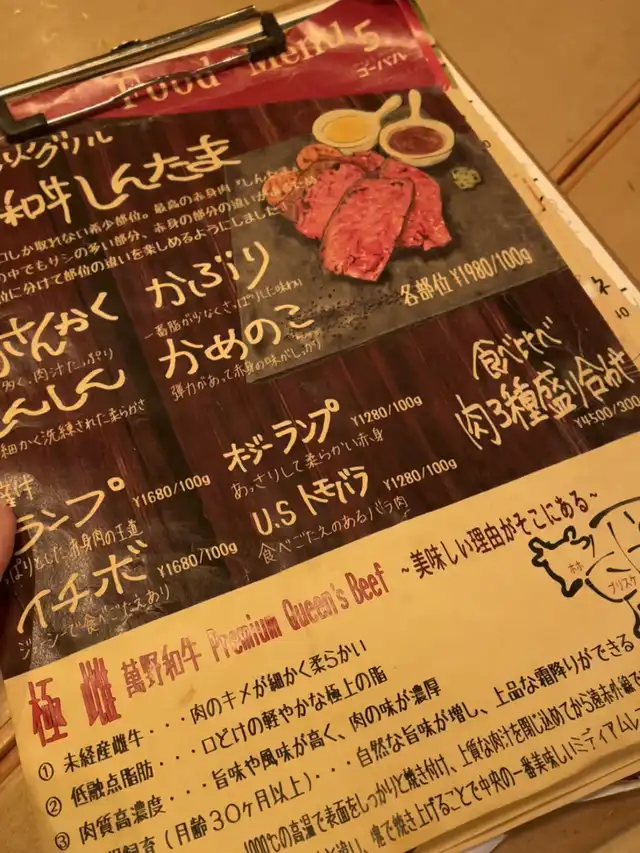 Food Menu 5
ゴーバル
グリル
和牛しんたま
しか取れない希少部位。最高の赤身肉
の中でもサシの多い部分、赤身の部分の違いが
に分けて部位の違いを楽しめるようにしました!
さんかく
多く、肉汁たっぷり
かぶり
一番脂が少なくさっぱりした味わい
しんしん
細かく洗練された柔らかさ
かめのこ
弾力があって赤身の味がしっかり
各部位 ¥1980/100g
ランプ ¥1680/100g
とした赤身肉の王道
イチボ ¥1680/100g
で食べごたえあり
オージーランプ ¥1280/100g
あっさりして柔らかい赤身
U.S トモバラ ¥1280/100g
食べごたえのあるバラ肉
食べ比べ
肉3種盛り合わせ
¥4500/300
極雌 萬野和牛 Premium Queen's Beef ~美味しい理由がそこにある~
ブリスケ
① 未経産雌牛・・・肉のキメが細かく柔らかい
② 低融点脂肪・・・口どけの軽やかな極上の脂
③ 肉質高濃度・・・旨味や風味が高く、肉の味が濃厚
飼育(月齢30ヶ月以上)・・・自然な旨味が増し、上品な霜降りができる
1000℃の高温で表面をしっかりと焼き付け、上質な肉汁を閉じ込めてから遠赤外線で
焼き上げることで中央の一番美味しいミディアムレ